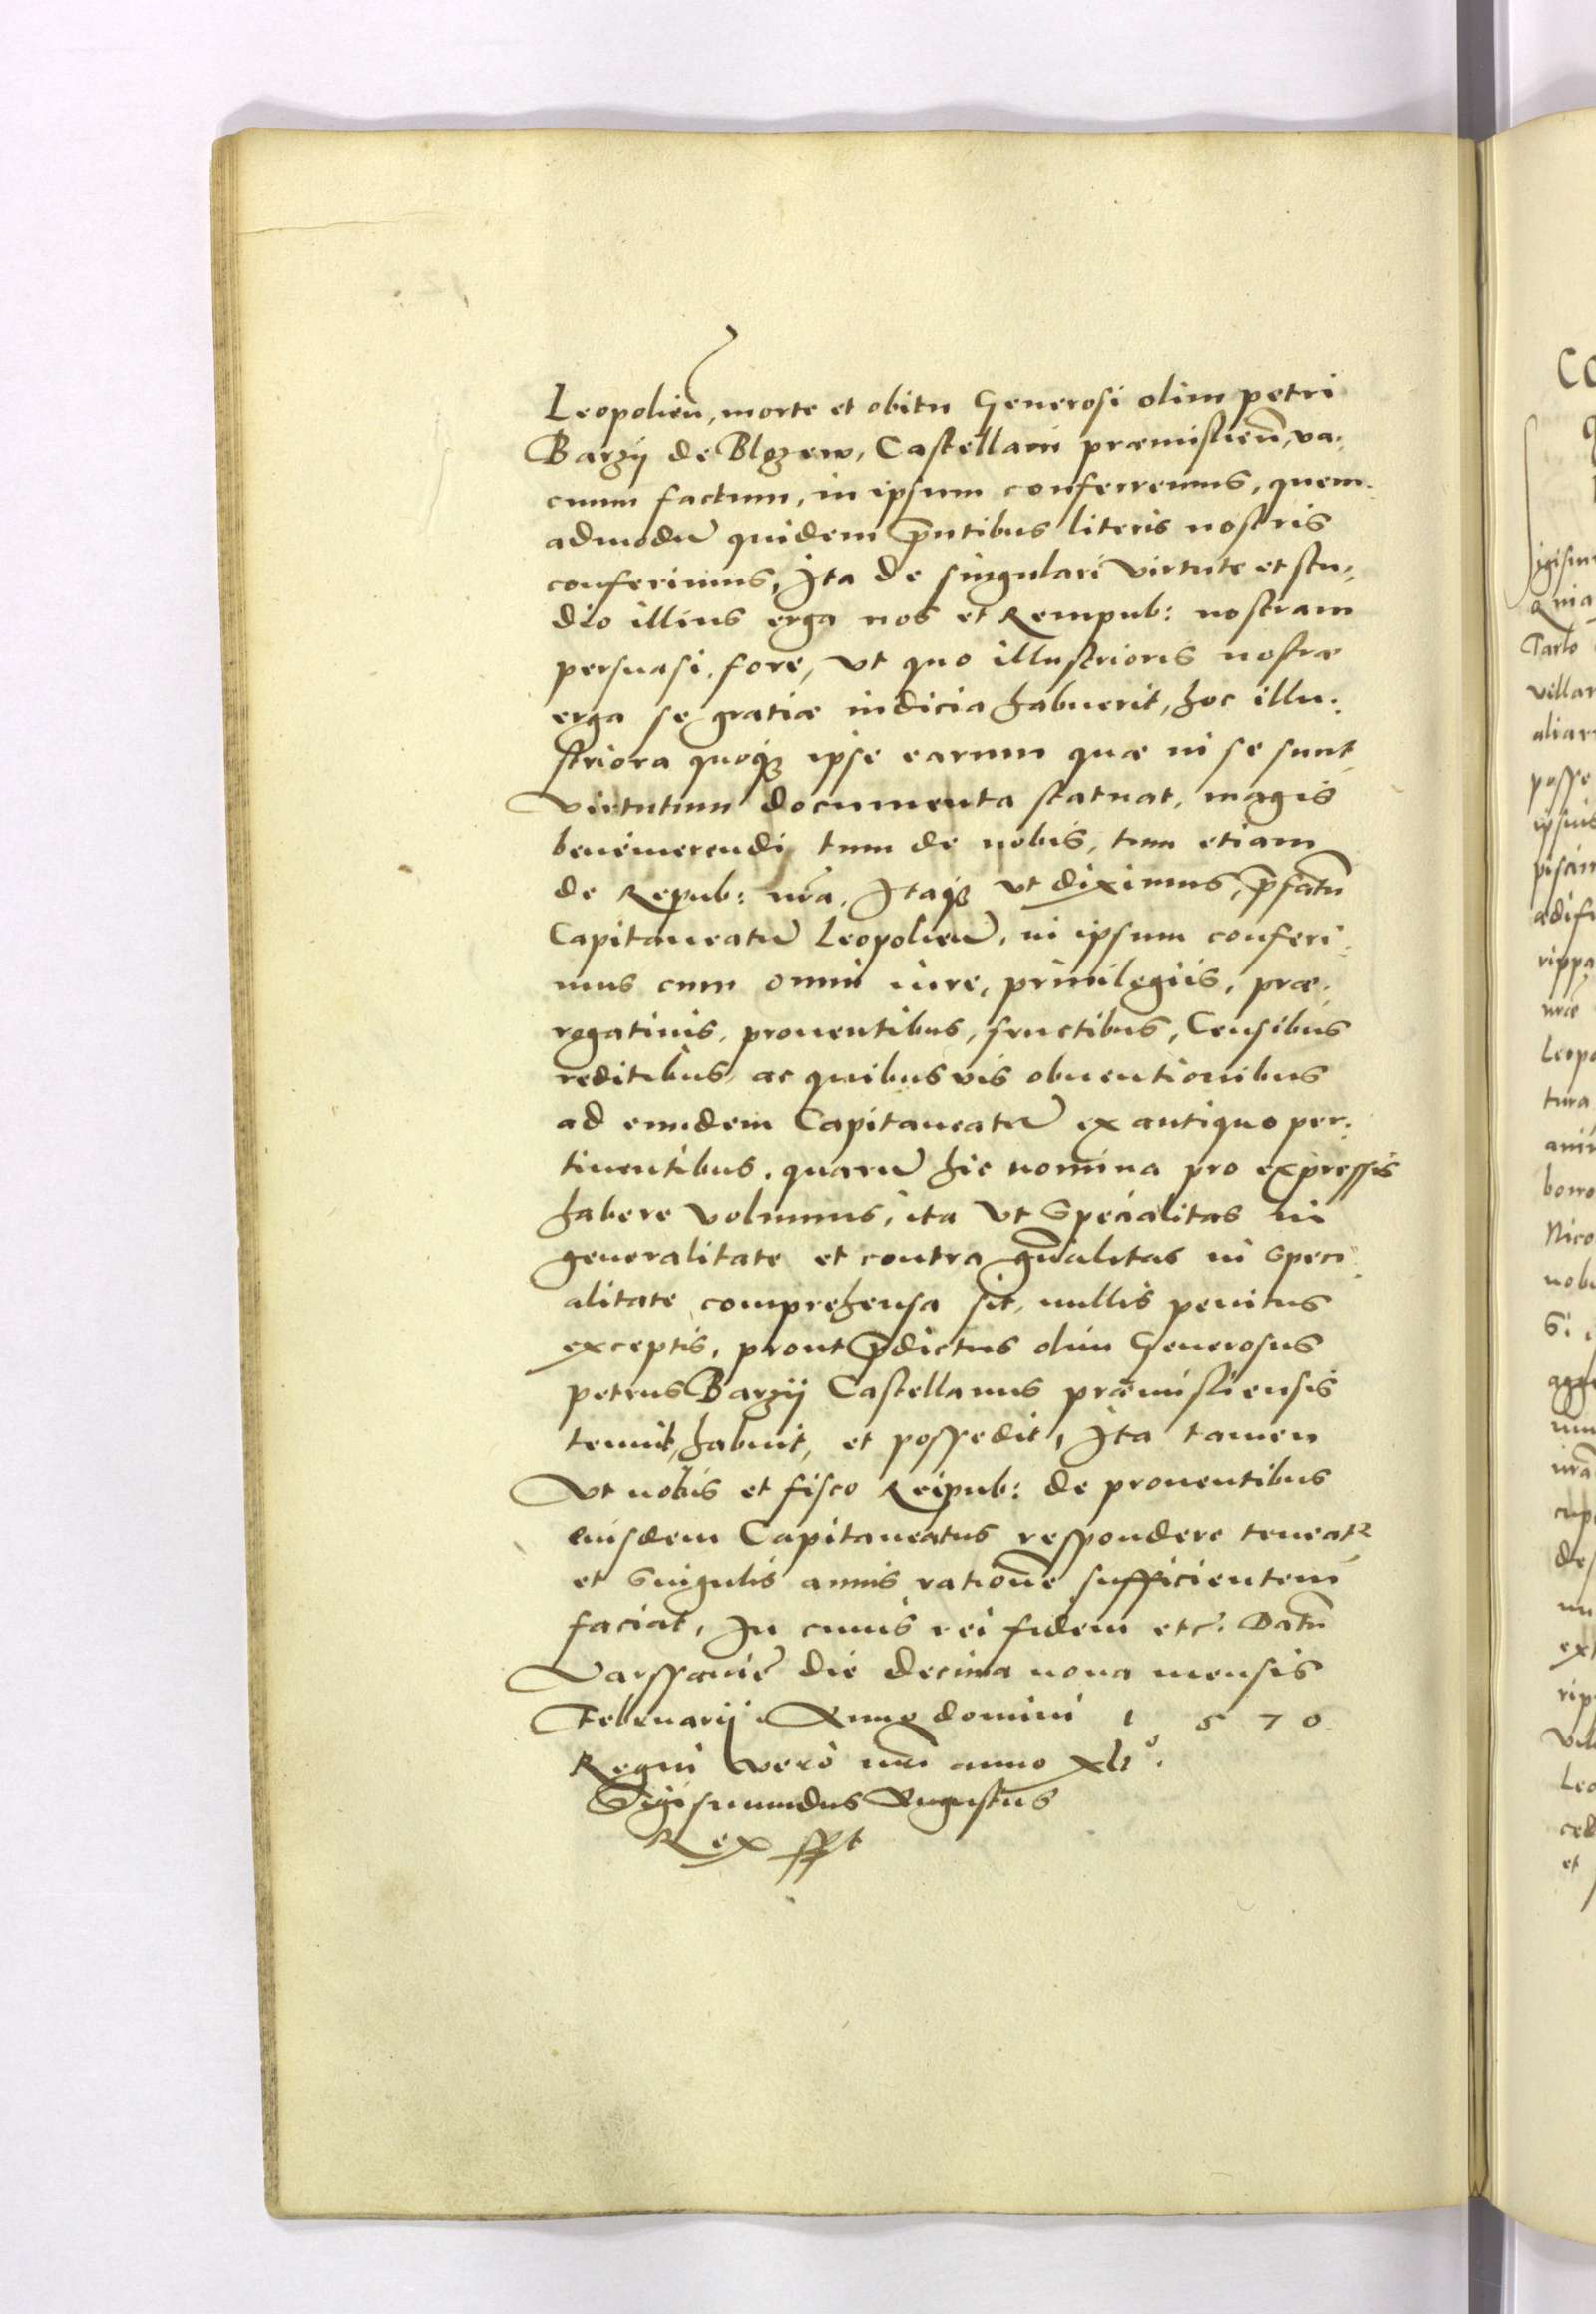 Leopolien̄, morte et obitu Generosi olim petri
Barzÿ de Blozew, Castellani præmislien̄, va:
cuum factum, in ipsum conferremus, quem:
admodū quidem p̄ntibus literis nostris
conferimus, Ita de singulari virtute et stu:
dio illius erga nos et Rempub: nostram
persuasi fore, vt quo illustrioris nostræ
erga se gratiæ indicia habuerit, hoc illu:
striora quoqȝ ipse earum quæ in se sunt
virtutum documenta statuat, magis
benemerendi tum de nobis, tum etiam
de Repub: nr̄a. Itaqȝ vt diximus, p̄fatū
Capitaneatū Leopolien̄, in ipsum conferi:
mus cum omni iure, priuilegiis, præ:
rogatiuis, prouentibus, fructibus, Censibus
reditibus, ac quibusvis obuentionibus
ad eundem Capitaneatū ex antiquo per:
tinentibus, quarū hic nomina pro expressis
habere volumus, ita vt Specialitas in
generalitate et contra gn̄alitas in speci:
alitate comprehensa sit, nullis penitus
exceptis, prout p̄dictus olim Generosus
petrus Barzÿ Castellanus præmisliensis
tenuit, habuit, et possedit, Ita tamen
Vt nobis et fisco Reipub: de prouentibus
eiusdem Capitaneatus respondere teneatr
et Singulis annis rationē sufficientem
faciat, In cuius rei fidem etc. Datū
Varssauiē die decima nona mensis
Februarÿ Anno domini 1 5 7 0
Regni vero nr̄i anno xli°.
Sigismundus Augustus
Rex sst